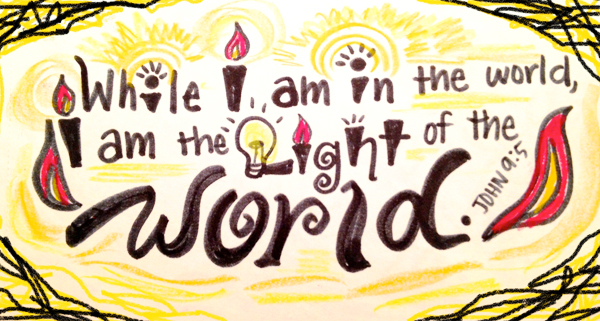 While I am in the world,
I am the Light of the
World.
JOHN 9:5